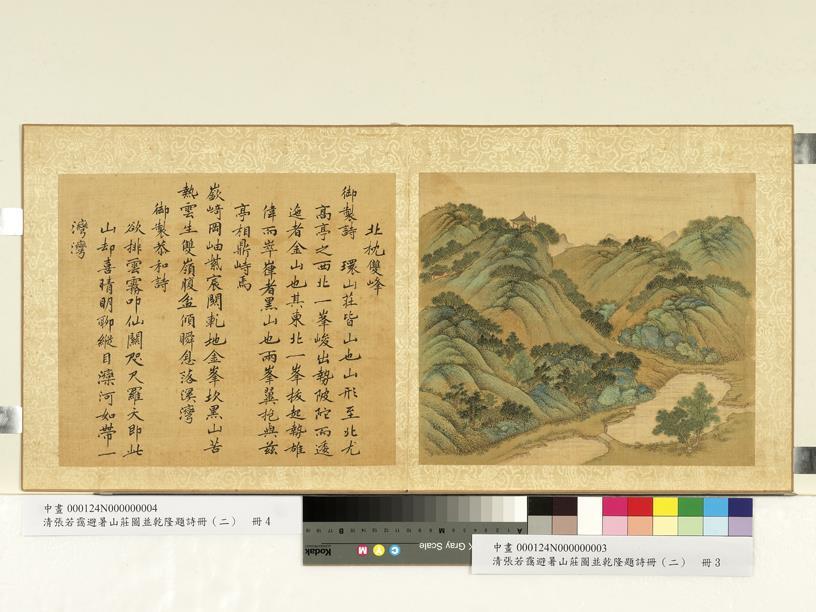 北枕雙峰
御製詩 環山莊皆山也山形至北尤
高亭之西北一峯峻出勢陂陀而逶
迤者金山也其東北一峯拔起勢雄
偉而崒嵂者黑山也兩峯翼抱與茲
亭相鼎峙焉
崎岡岫紫宸關乾地金峯坎黑山苦
熱雲生雙嶺腹盆傾瞬息落溪灣
御製恭和詩
欲排雲霧叩仙關咫尺羅天即此
山却喜晴明聊縱目灤河如帶一
灣灣
中畫 000124N000000004
清張若靄避暑山莊圖並乾隆題詩冊（二） 冊4
Kodak
Gray Scale
C Y M
A
M
B
中畫 000124N000000003
清張若靄避暑山莊圖並乾隆題詩冊（二） 冊3